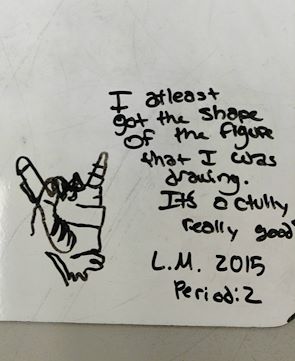 I atleast
got the shape
of the figure
that I was
drawing.
It's actully
really good
L.M. 2015
Period:2